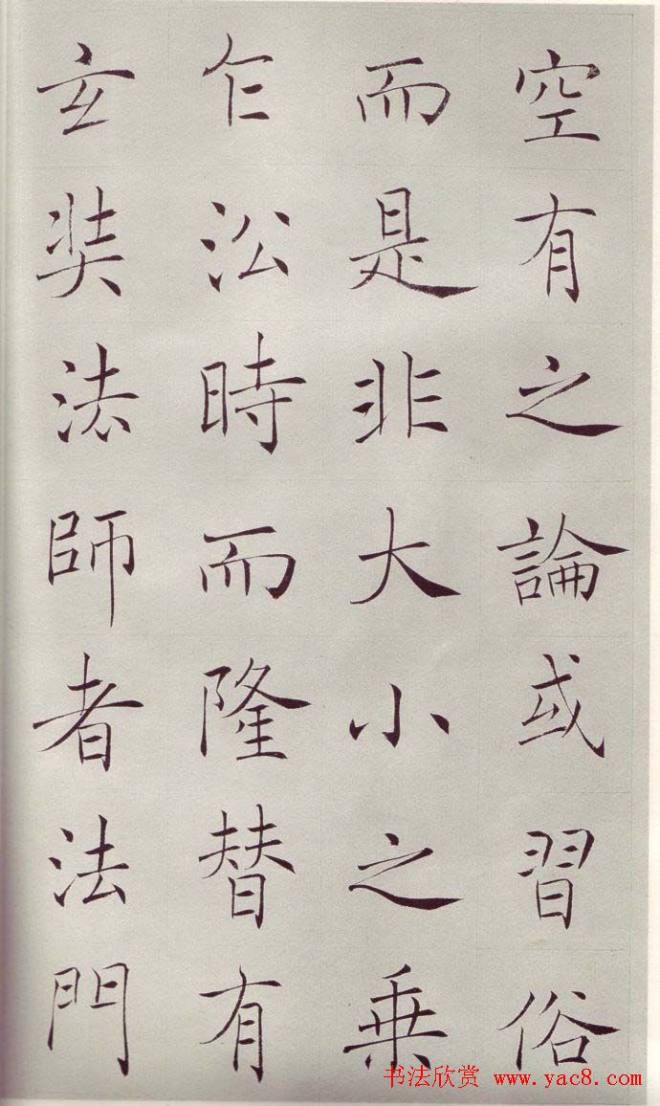 空有之論或習俗
而是非大小之乗
乍沿時而隆替有
玄奘法師者法門
书法欣赏 www.yac8.com